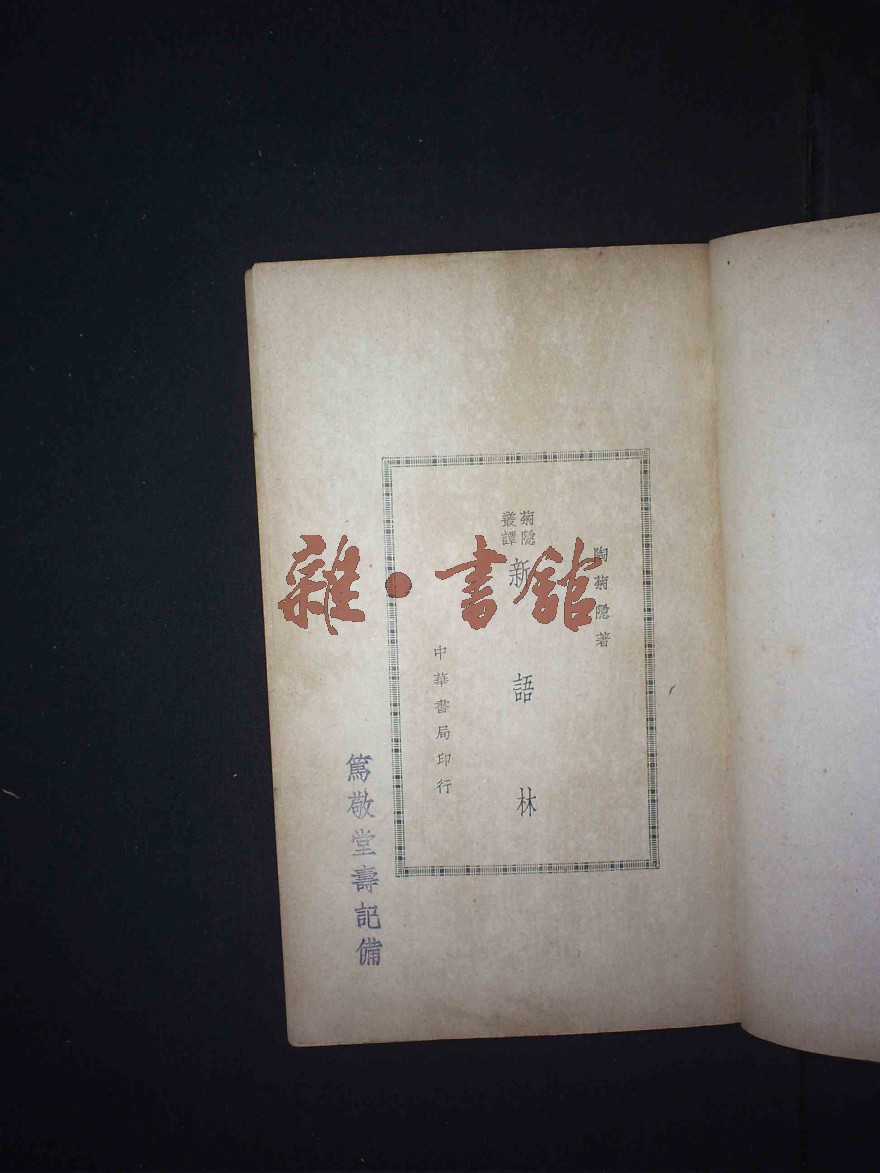 陶菊隱著
菊隱
叢譚
新語林
中華書局印行
篤敬堂壽記備
雜·書館